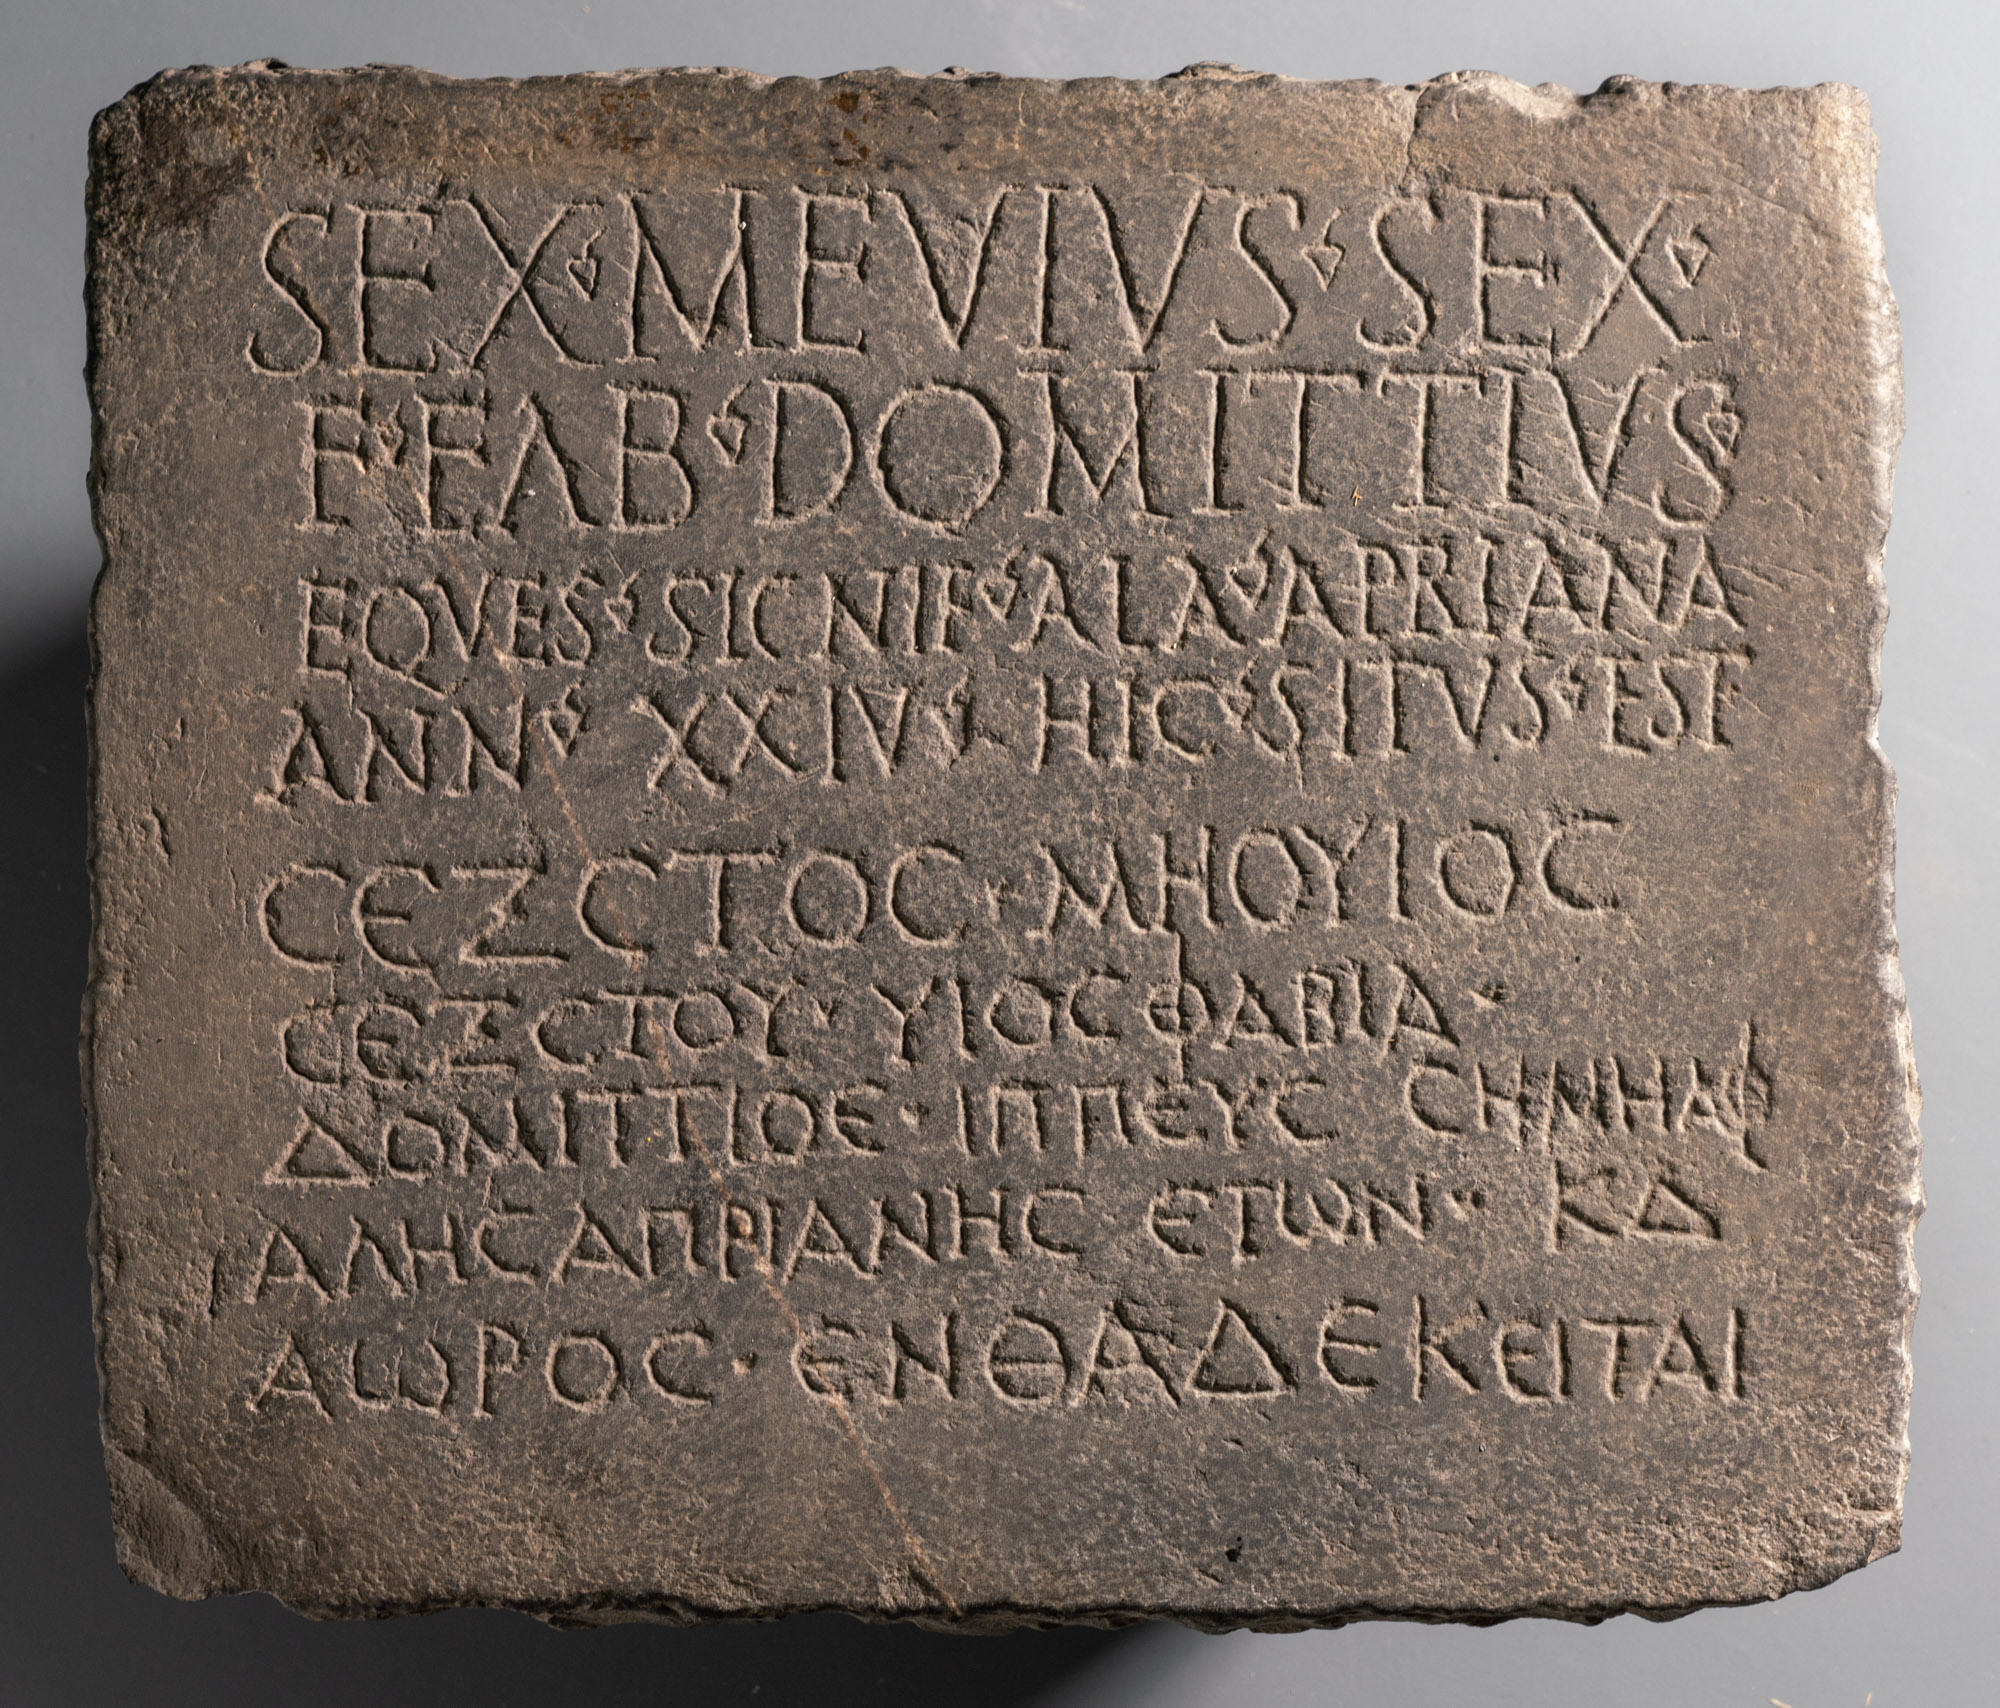 SEX · MEVIVS · SEX ·
F · FAB · DOMITTIVS ·
EQVES · SIGNIF · ALA · APRIANA
ANN · XXIV · HIC · SITVS · EST
ϹΕΖϹΤΟϹ · ΜΗΟΥΙΟϹ
ϹΕΖϹΤΟΥ · ΥΙΟϹ ΦΑΒΙΑ ·
ΔΟΜΙΤΤΙΟϹ · ΙΠΠΕΥϹ ϹΗΜΗΑΦ
ΑΛΗϹ ΑΠΡΙΑΝΗϹ ΕΤΩΝ · ΚΔ
ΑΩΡΟϹ · ΕΝΘΑΔΕ ΚΕΙΤΑΙ